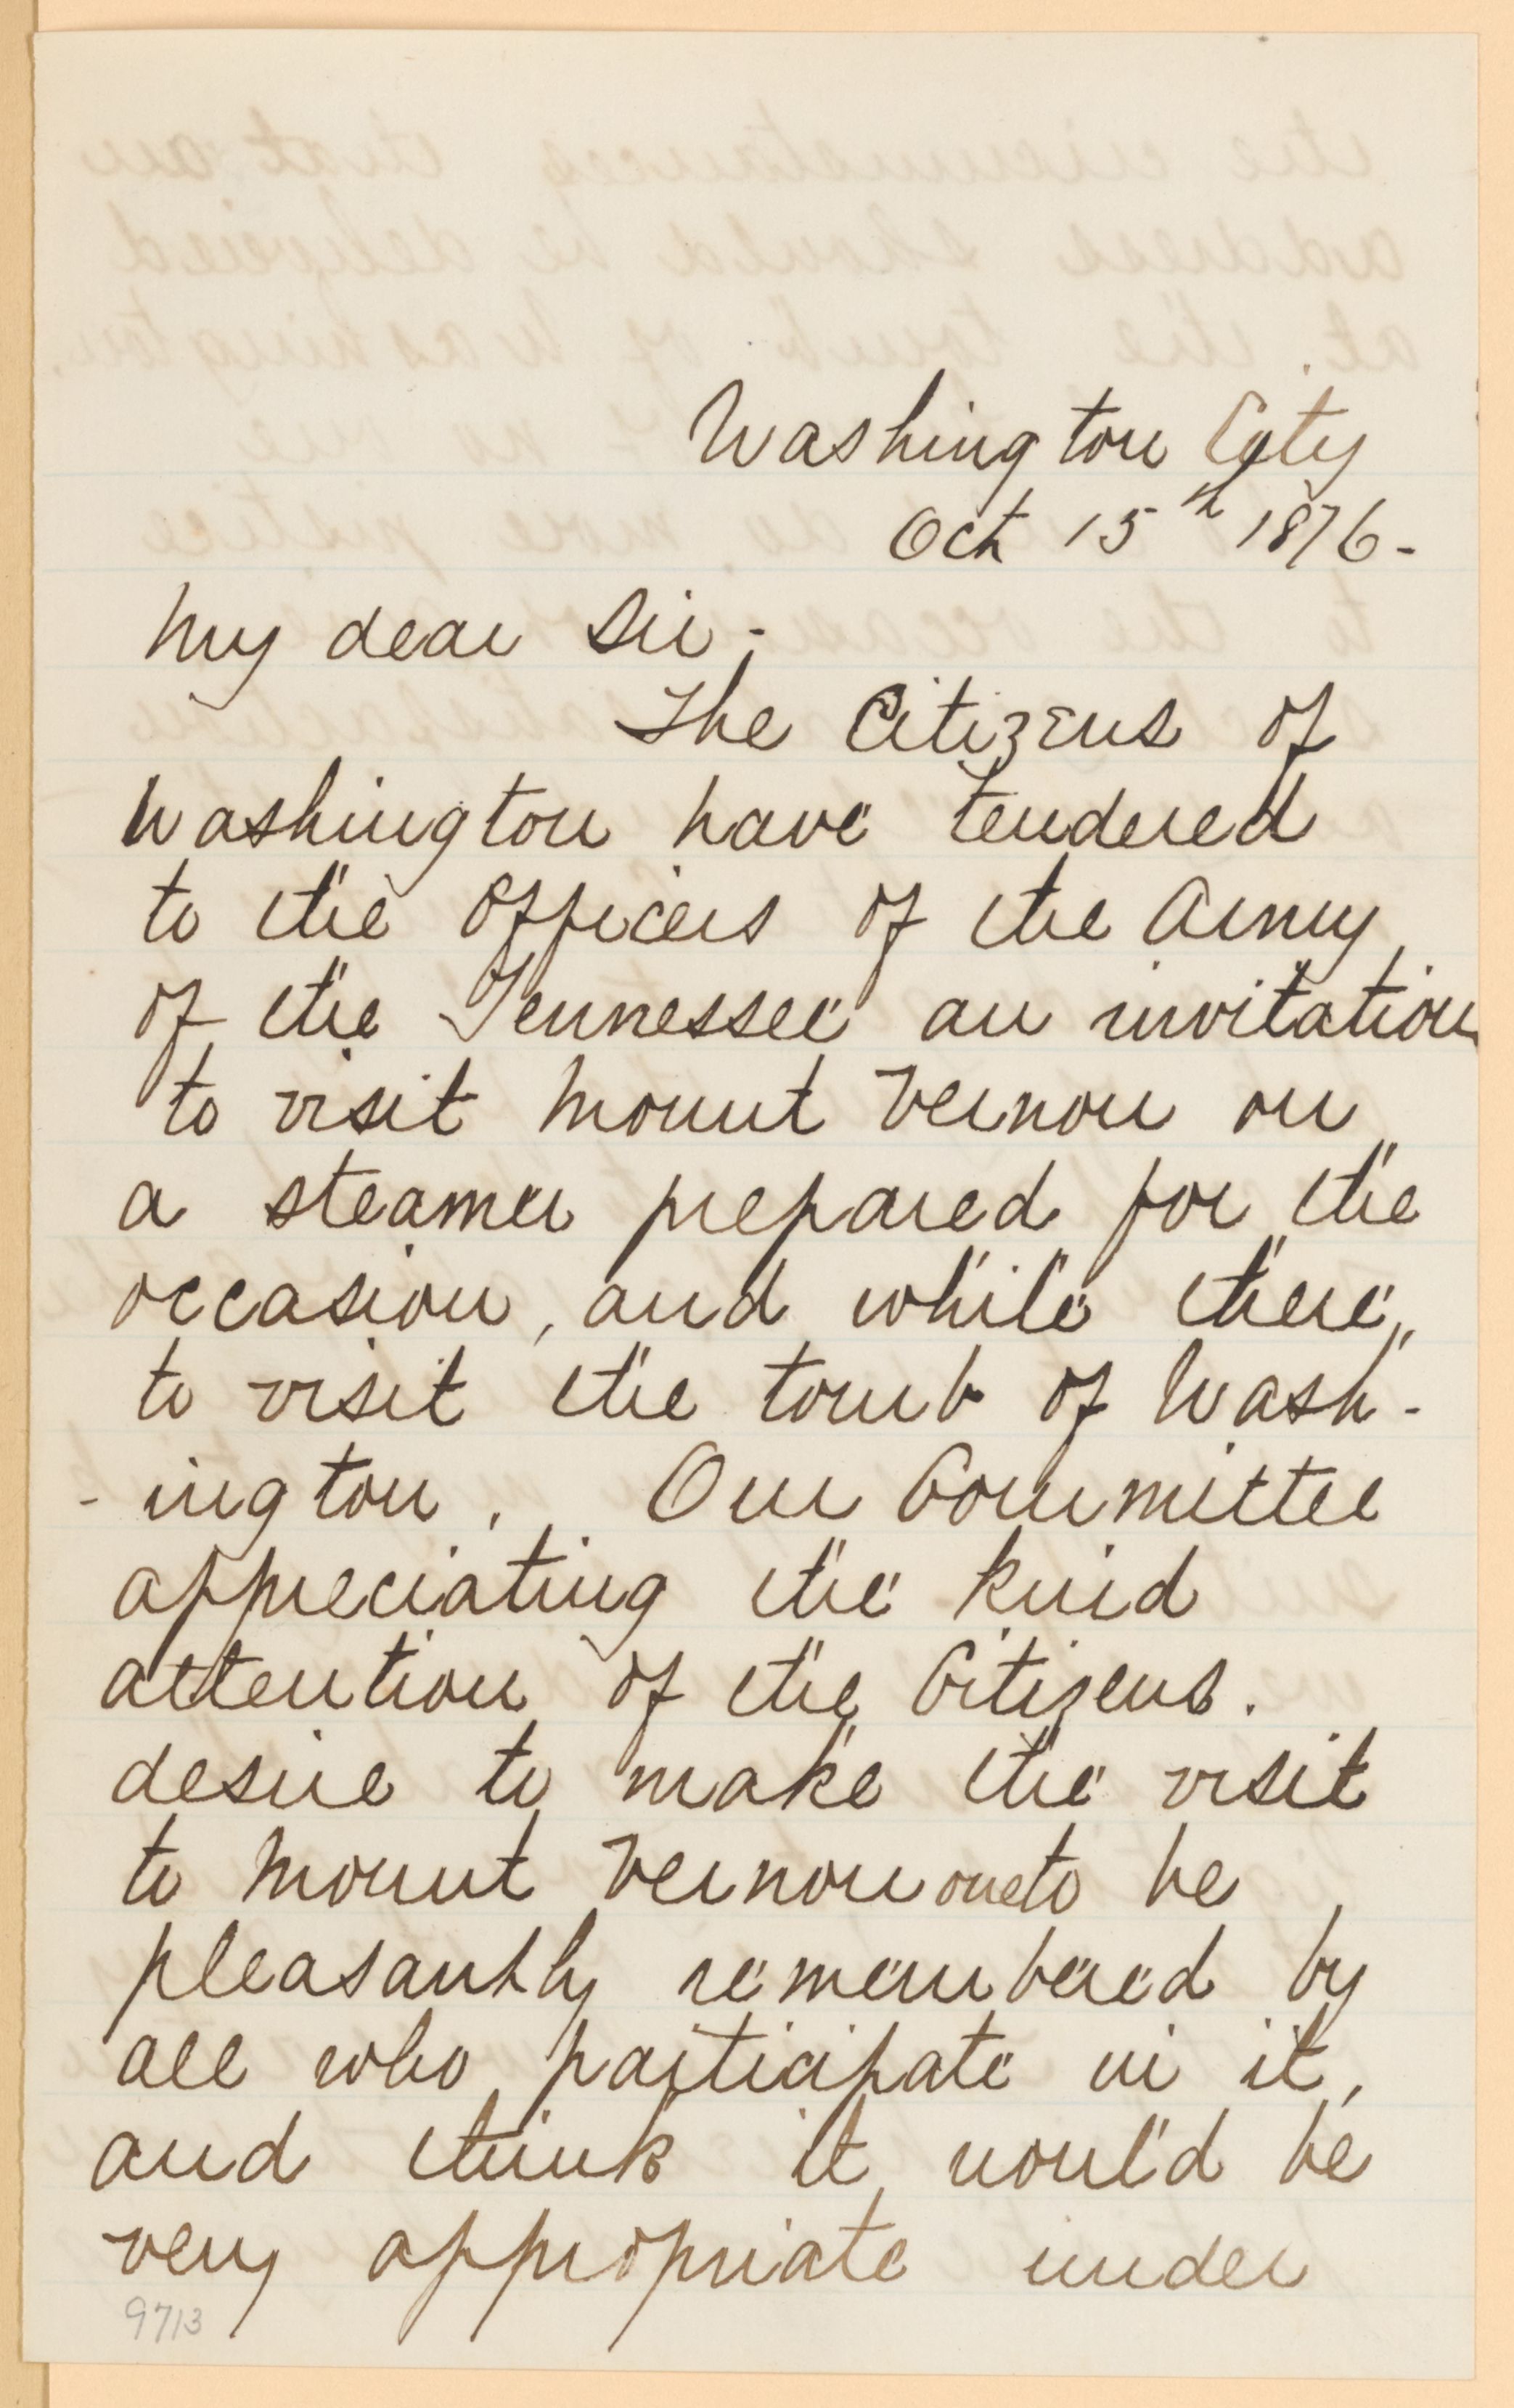 Washington City
Oct 15th 1876-
My dear Sir-
The Citizens of
Washington have tendered
to the Officers of the Army
of the Tennessee an invitation
to visit Mount Vernon on
a steamer prepared for the
occasion, and while there,
to visit the tomb of Wash-
-ington. Our Committee
appreciating the kind
attention of the Citizens.
desire to make the visit
to Mount Vernon one to be
pleasantly remembered by
all who participate in it,
and think it would be
very appropriate under
9713